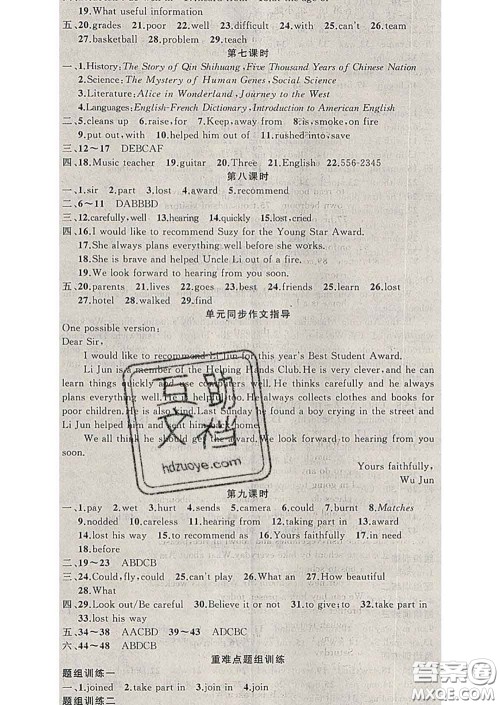 19.What useful information
五、20.grades 21.poor 22.well 23.difficult 24.with 25.can't 26.team
27.basketball 28.problem 29.teach
第七课时
一、1.History:The Story of Qin Shihuang,Five Thousand Years of Chinese Nation
2.Science:The Mystery of Human Genes,Social Science
3.Literature:Alice in Wonderland,Journey to the West
4.Languages:English-French Dictionary,Introduction to American English
二、5.cleans up 6.raise,for 7.Keep,away 8.is,smoke,on fire
9.put out,with 10.helped him out of 11.rushed into,save
三、12~17 DEBCAF
四、18.Music teacher 19.guitar 20.Three 21.English 22.556-2345
第八课时
一、1.sir 2.part 3.lost 4.award 5.recommend
二、6~11 DABBBD
三、12.carefully,well 13.hearing 14.quickly 15.lost,cried
四、16.I would like to recommend Suzy for the Young Star Award.
17.She always plans everything well before she works.
18.She is brave and helped Uncle Li out of a fire.
19.We look forward to hearing from you soon.
五、20.parents 21.lives 22.goes 23.best 24.friends 25.learn 26.lost
27.hotel 28.walked 29.find
单元同步作文指导
One possible version:
Dear Sir,
I would like to recommend Li Jun for this year's Best Student Award.
Li Jun is a member of the Helping Hands Club.He is very clever,and he can
learn things quickly and use computers well.He thinks carefully and he always
plans everything well.He is also helpful.He always collects clothes and books for
poor children.He is also kind.Last Sunday he found a boy crying in the street and
Li Jun helped him and sent him back home.
We all think he should get the award.We look forward to hearing from you
soon.
Yours faithfully,
Wu Jun
互助文档
hdzuoye.com
第九课时
一、1.pay 2.wet 3.hurt 4.sends 5.camera 6.could 7.build 8.Matches
9.nodded 10.careless 11.hearing from 12.taking part in 13.award
14.lost his way 15.to recommend as 16.Yours faithfully 17.in need
18.before
二、19~23 ABDCB
三、24.Could,fly,could 25.can't play 26.What an 27.How beautiful
28.What
四、29.Look out/Be careful 30.Believe it or not 31.is giving 32.take part in
33.lost his way
五、34~38 AACBD 39~43 ADCBC
六、44~48 ABDCB
重难点题组训练
题组训练一
一、1.joined 2.take part in 3.join in 4.join
题组训练二
答案圈
MXQE.COM